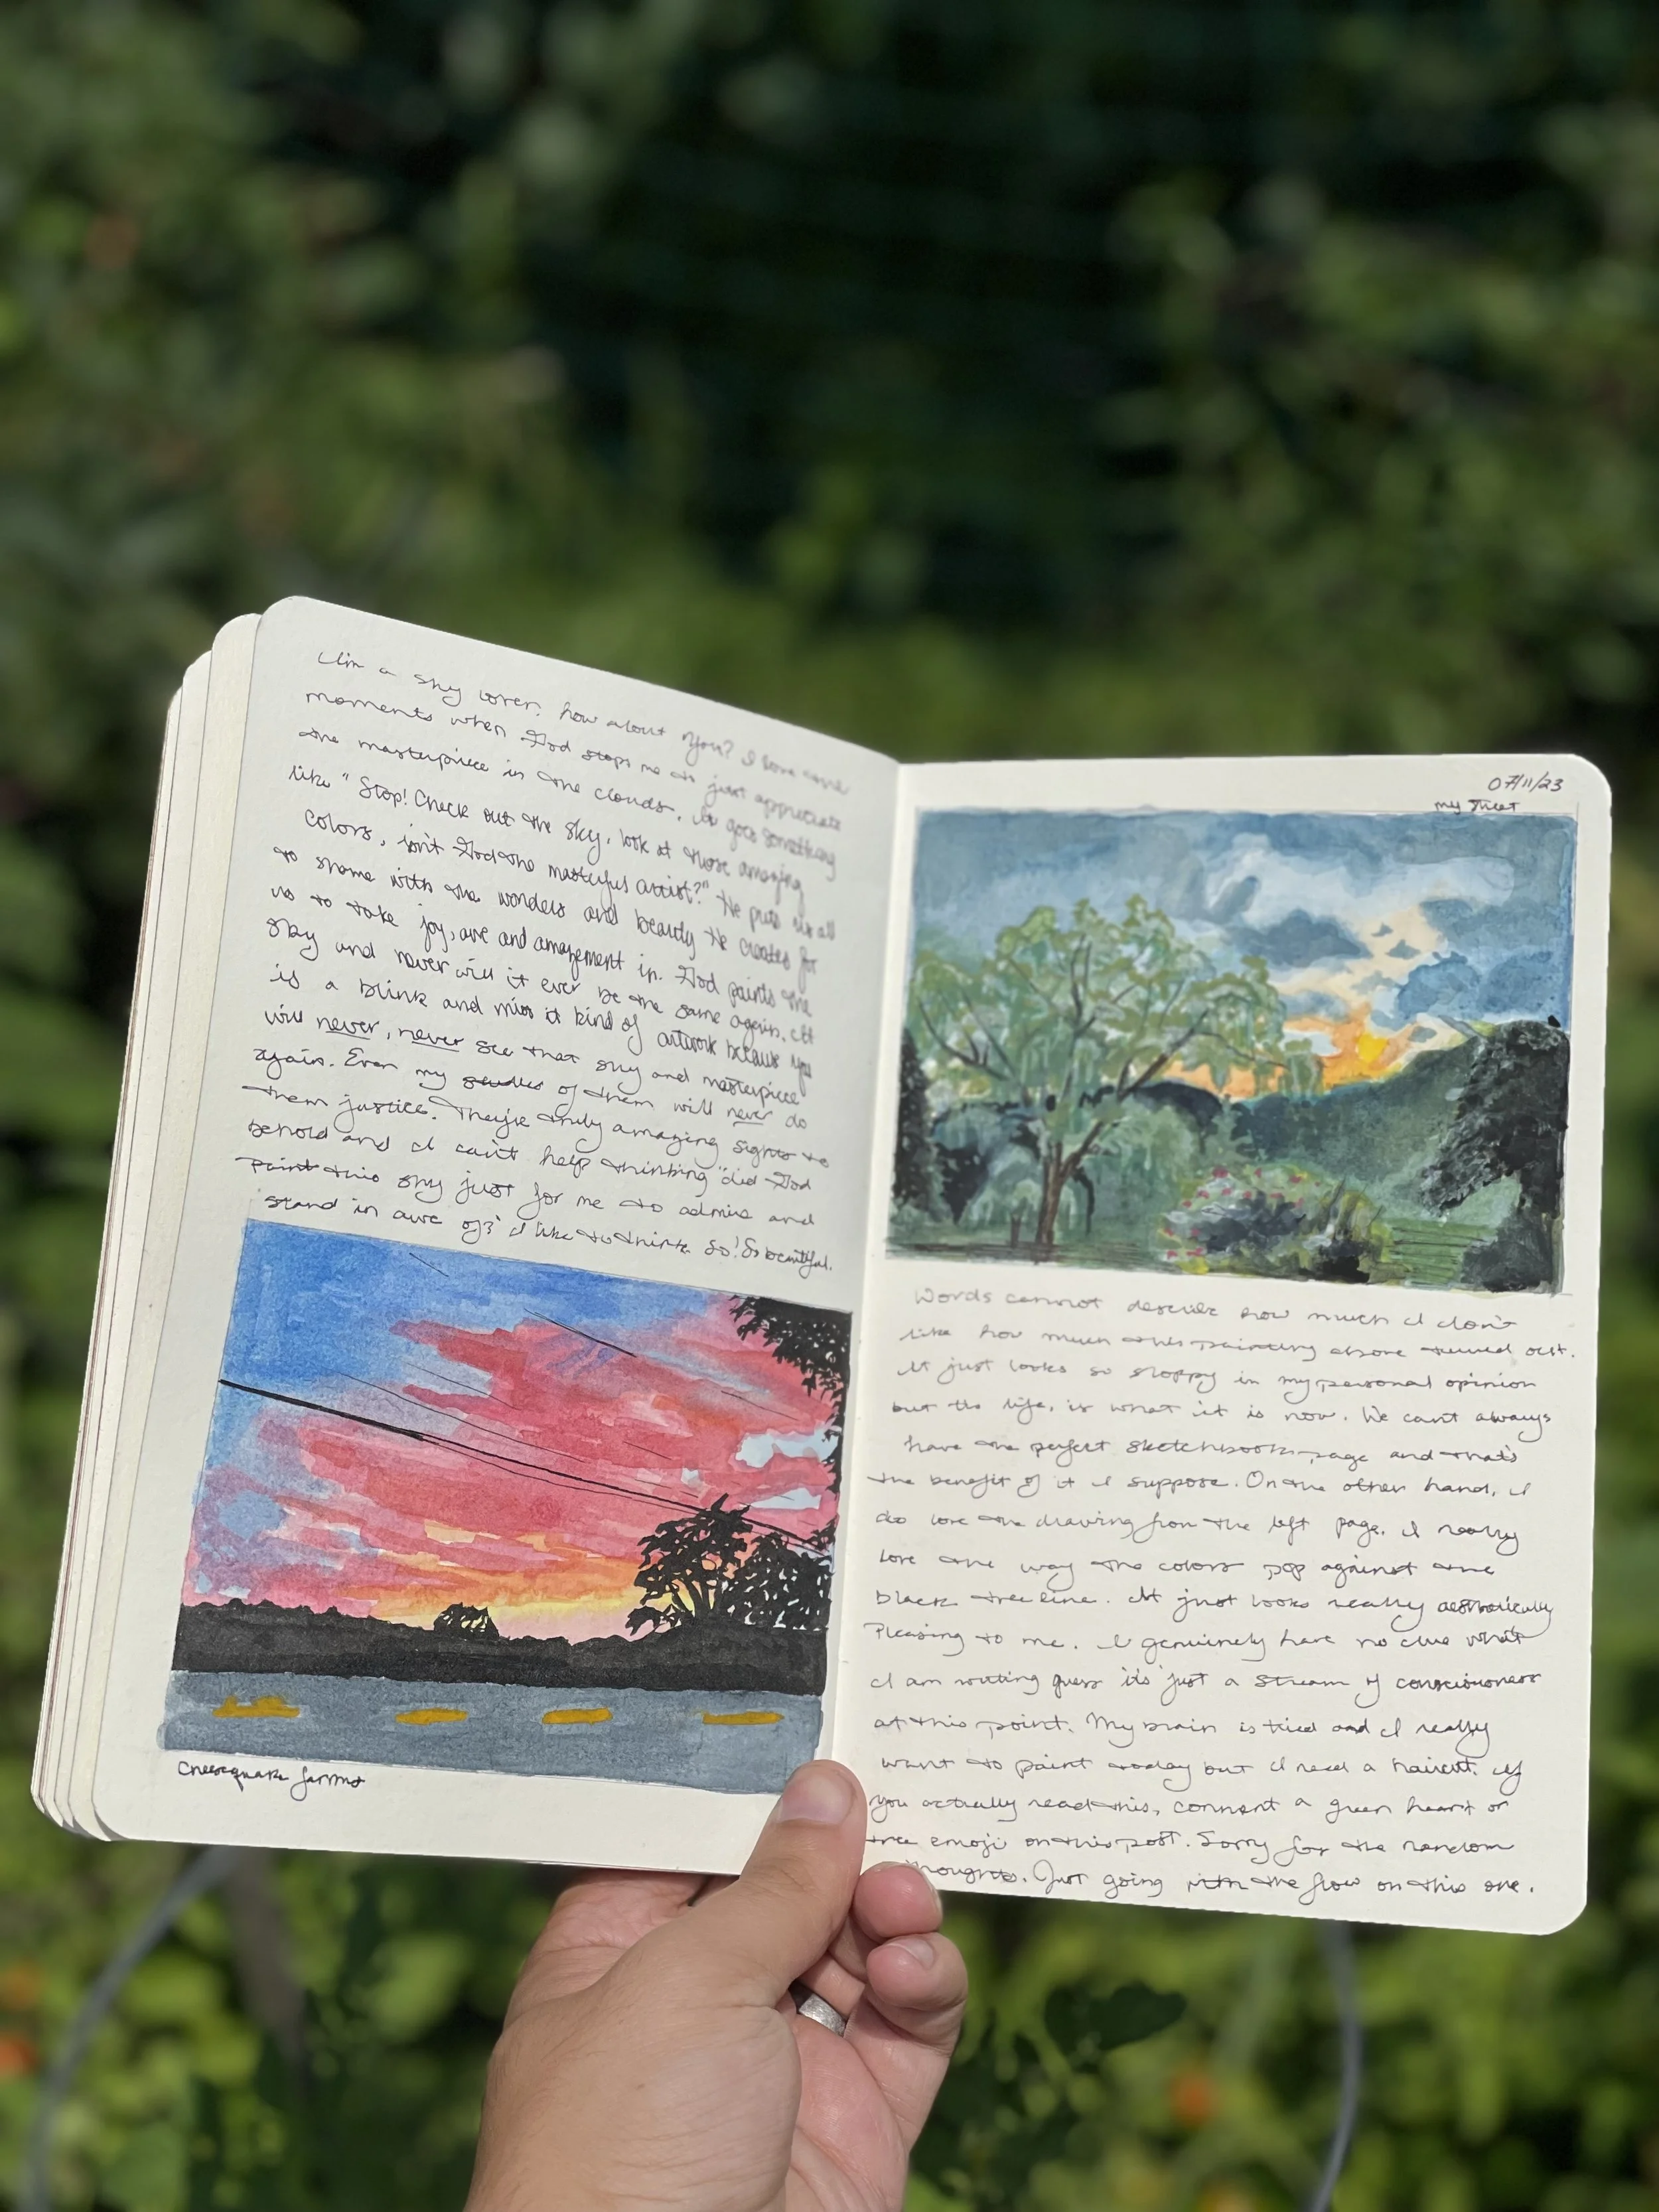 I'm a sky lover, how about you? I love those
moments when God stops me to just appreciate
the masterpiece in the clouds. It goes something
like "Stop! Check out the sky, look at those amazing
colors, isn't God the masterful artist?" He puts us all
to shame with the wonders and beauty He creates for
us to take joy, awe and amazement in. God paints the
sky and never will it ever be the same again. It
is a blink and miss it kind of artwork because you
will never, never see that sky and masterpiece
again. Even my studies of them will never do
them justice. They're truly amazing sights to
behold and I can't help thinking "did God
paint this sky just for me to admire and
stand in awe of?" I like to think so! So beautiful.
Cheesequake farms
07/11/23
my street
Words cannot describe how much I don't
like how much this painting above turned out.
It just looks so sloppy in my personal opinion
but tis life, is what it is now. We can't always
have the perfect sketchbook page and that's
the benefit of it I suppose. On the other hand, I
do love the drawing from the left page. I really
love the way the colors pop against the
black tree line. It just looks really aesthetically
pleasing to me. I genuinely have no clue what
I am writing guess it's just a stream of consciousness
at this point. My brain is tired and I really
want to paint today but I need a haircut. If
you actually read this, comment a green heart or
tree emoji on this post. Sorry for the random
thoughts. Just going with the flow on this one.